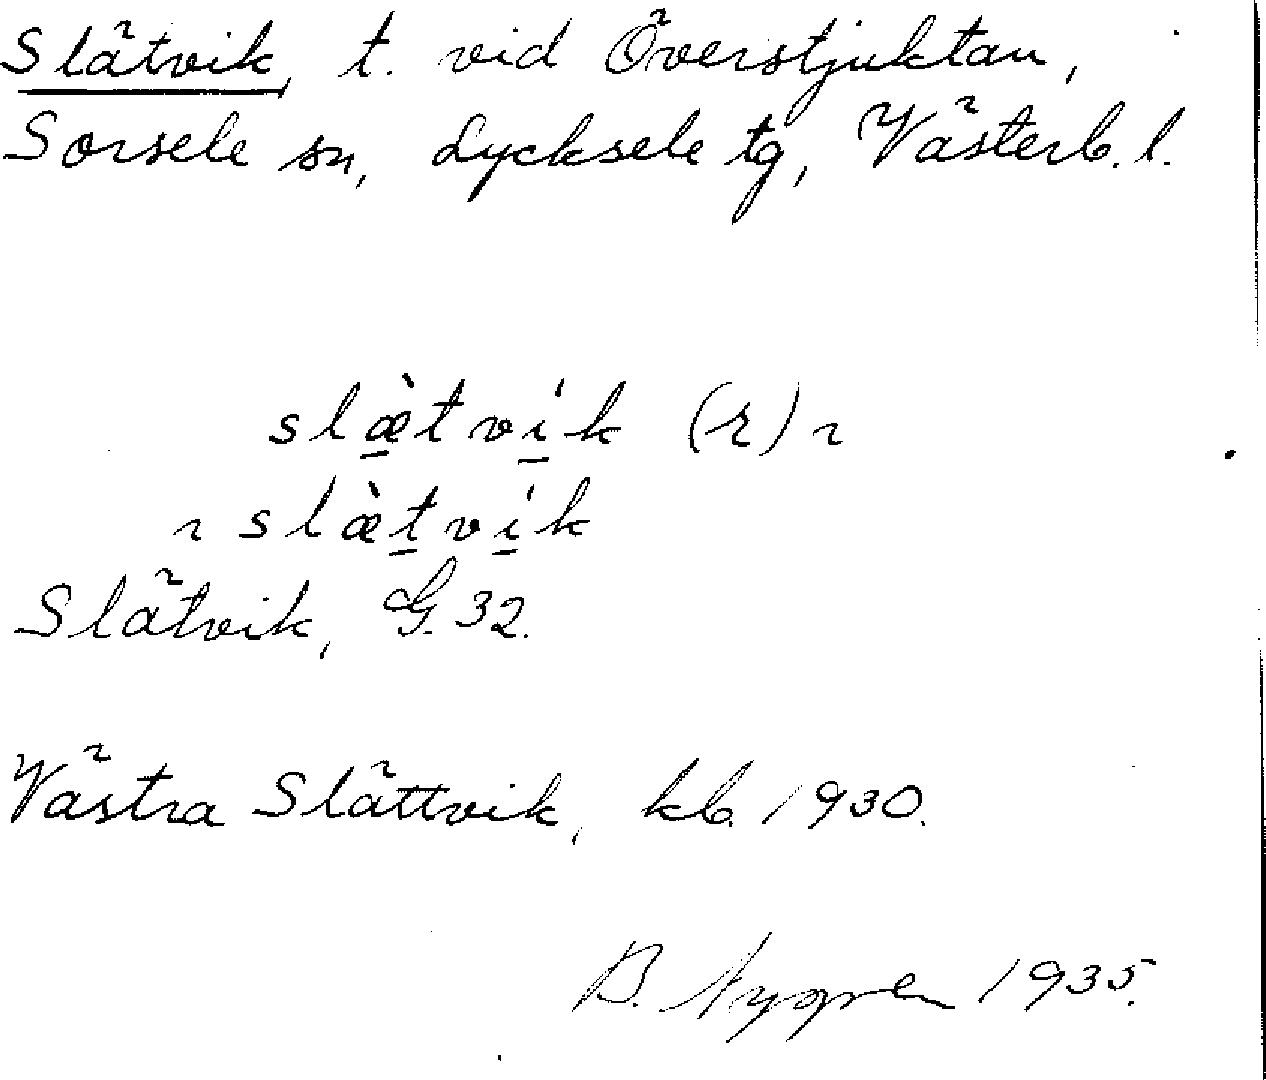 Slätvik, t. vid Överstjuktan,
Sorsele sn, Lycksele tg, Västerb. l.
slæ̱̀tvi̱ḱ (r) ~
~ slæ̀ṯvi̱ḱ
Slätvik, G. 32.
Västra Slättvik, kb. 1930.
B. Nygren 1935.